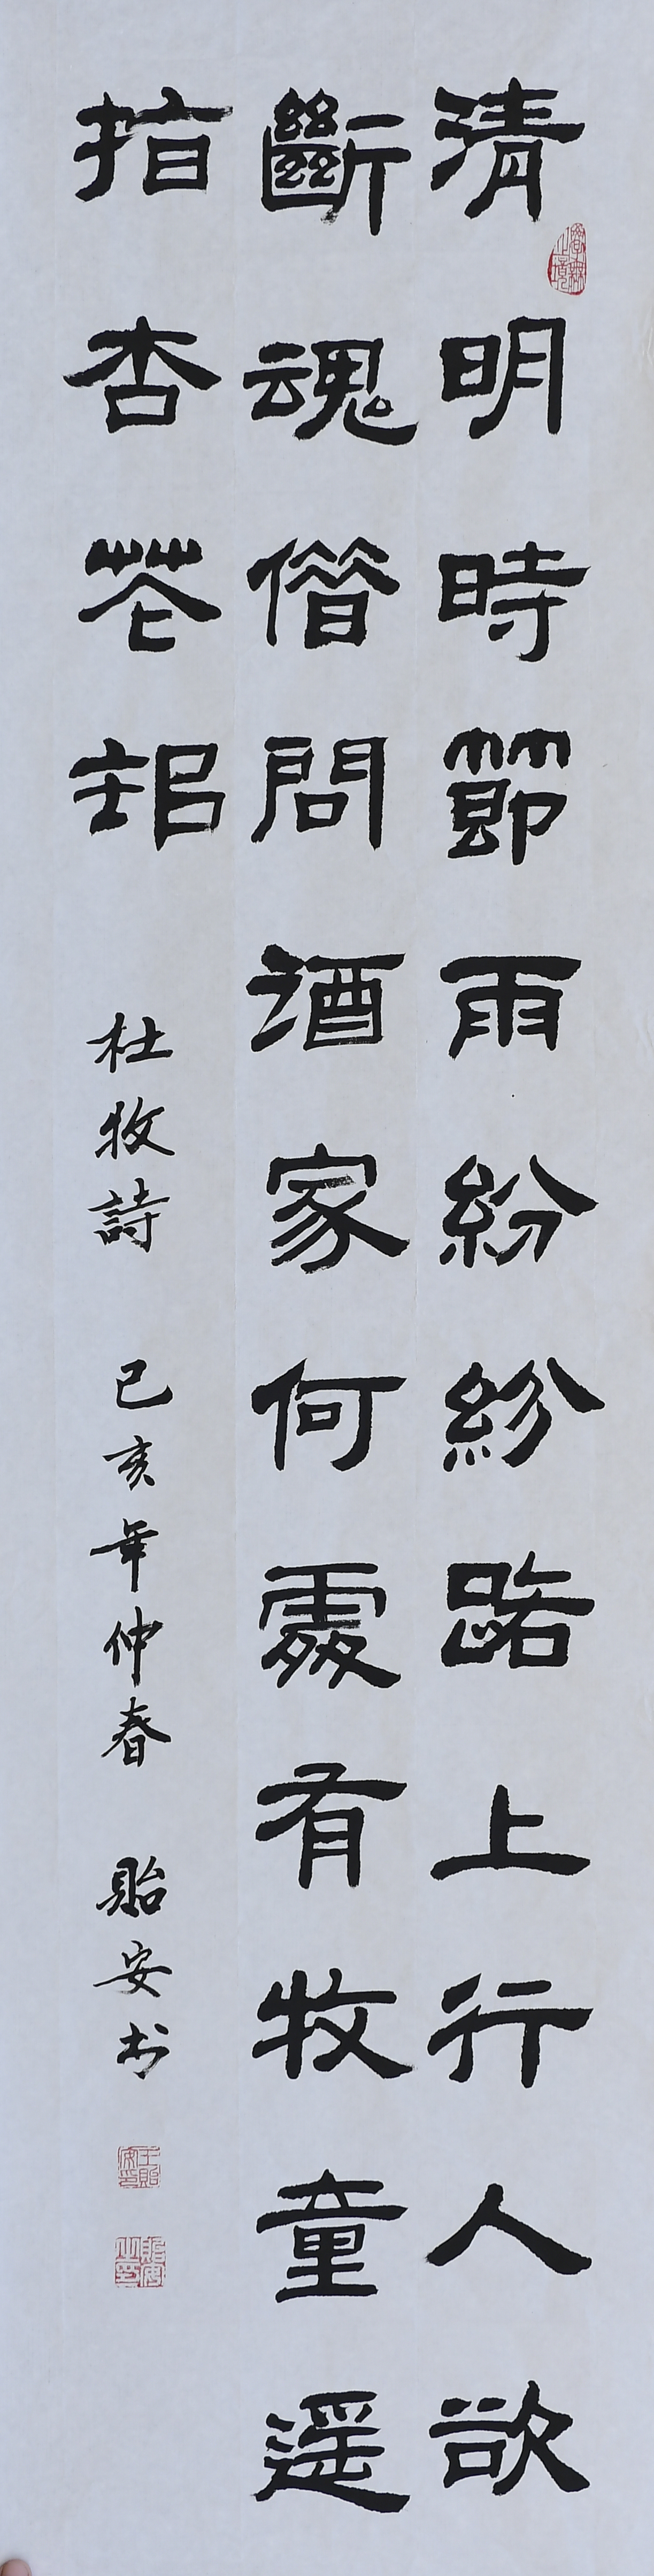 清明時節雨紛紛路上行人欲
學無止境
斷魂借問酒家何處有牧童遥
指杏花邨
杜牧詩 己亥年仲春 貽安书
王貽安印